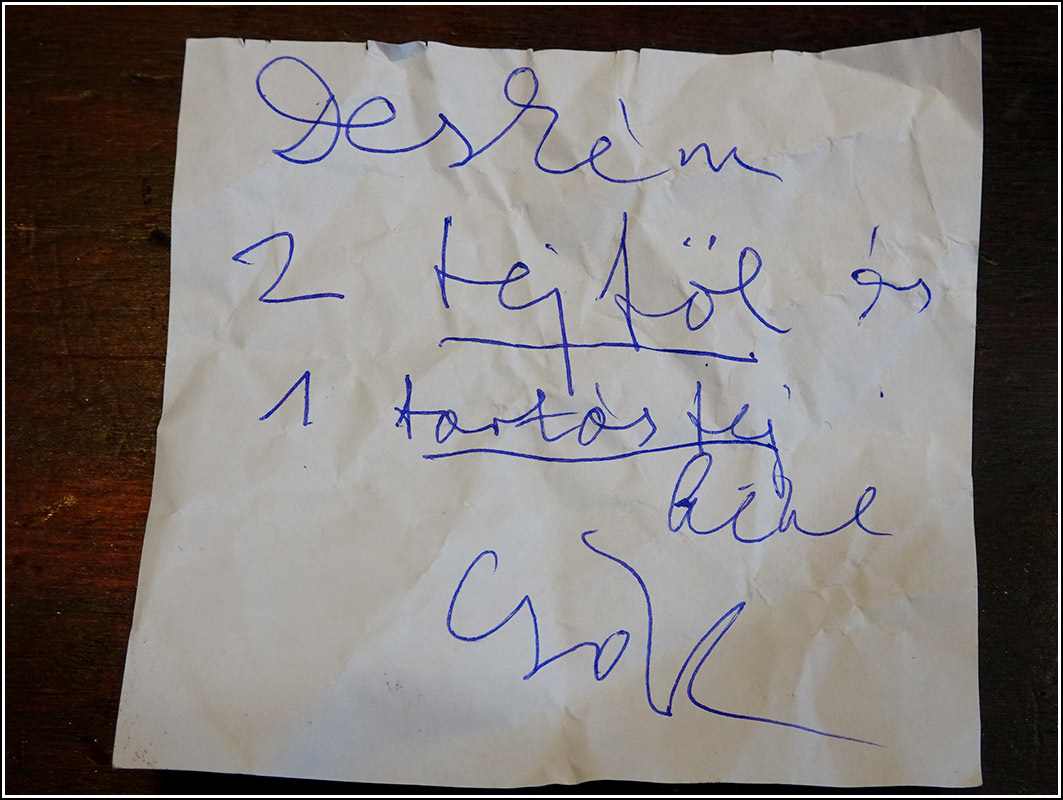 2 tejföl és
1 tartós tej
kéne
Csók